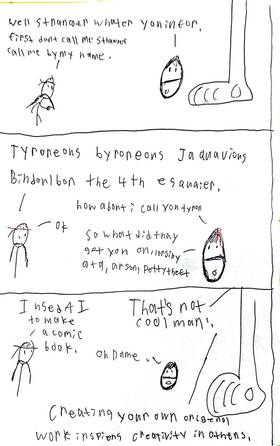 Well stranger whater yoninfor.
first dont call me stranner
call me by my name.
Tyroneons byroneons Jaquavious
Bindonlbon the 4th esquaier.
how abont i call yontyron
Ok
So what did thay
get yon on
atd, arson, pettytheet
I nsed A I
to make
a comic
book.
That's not
cool man!
oh Dame
Creating your own
work inspiers creativity in others.